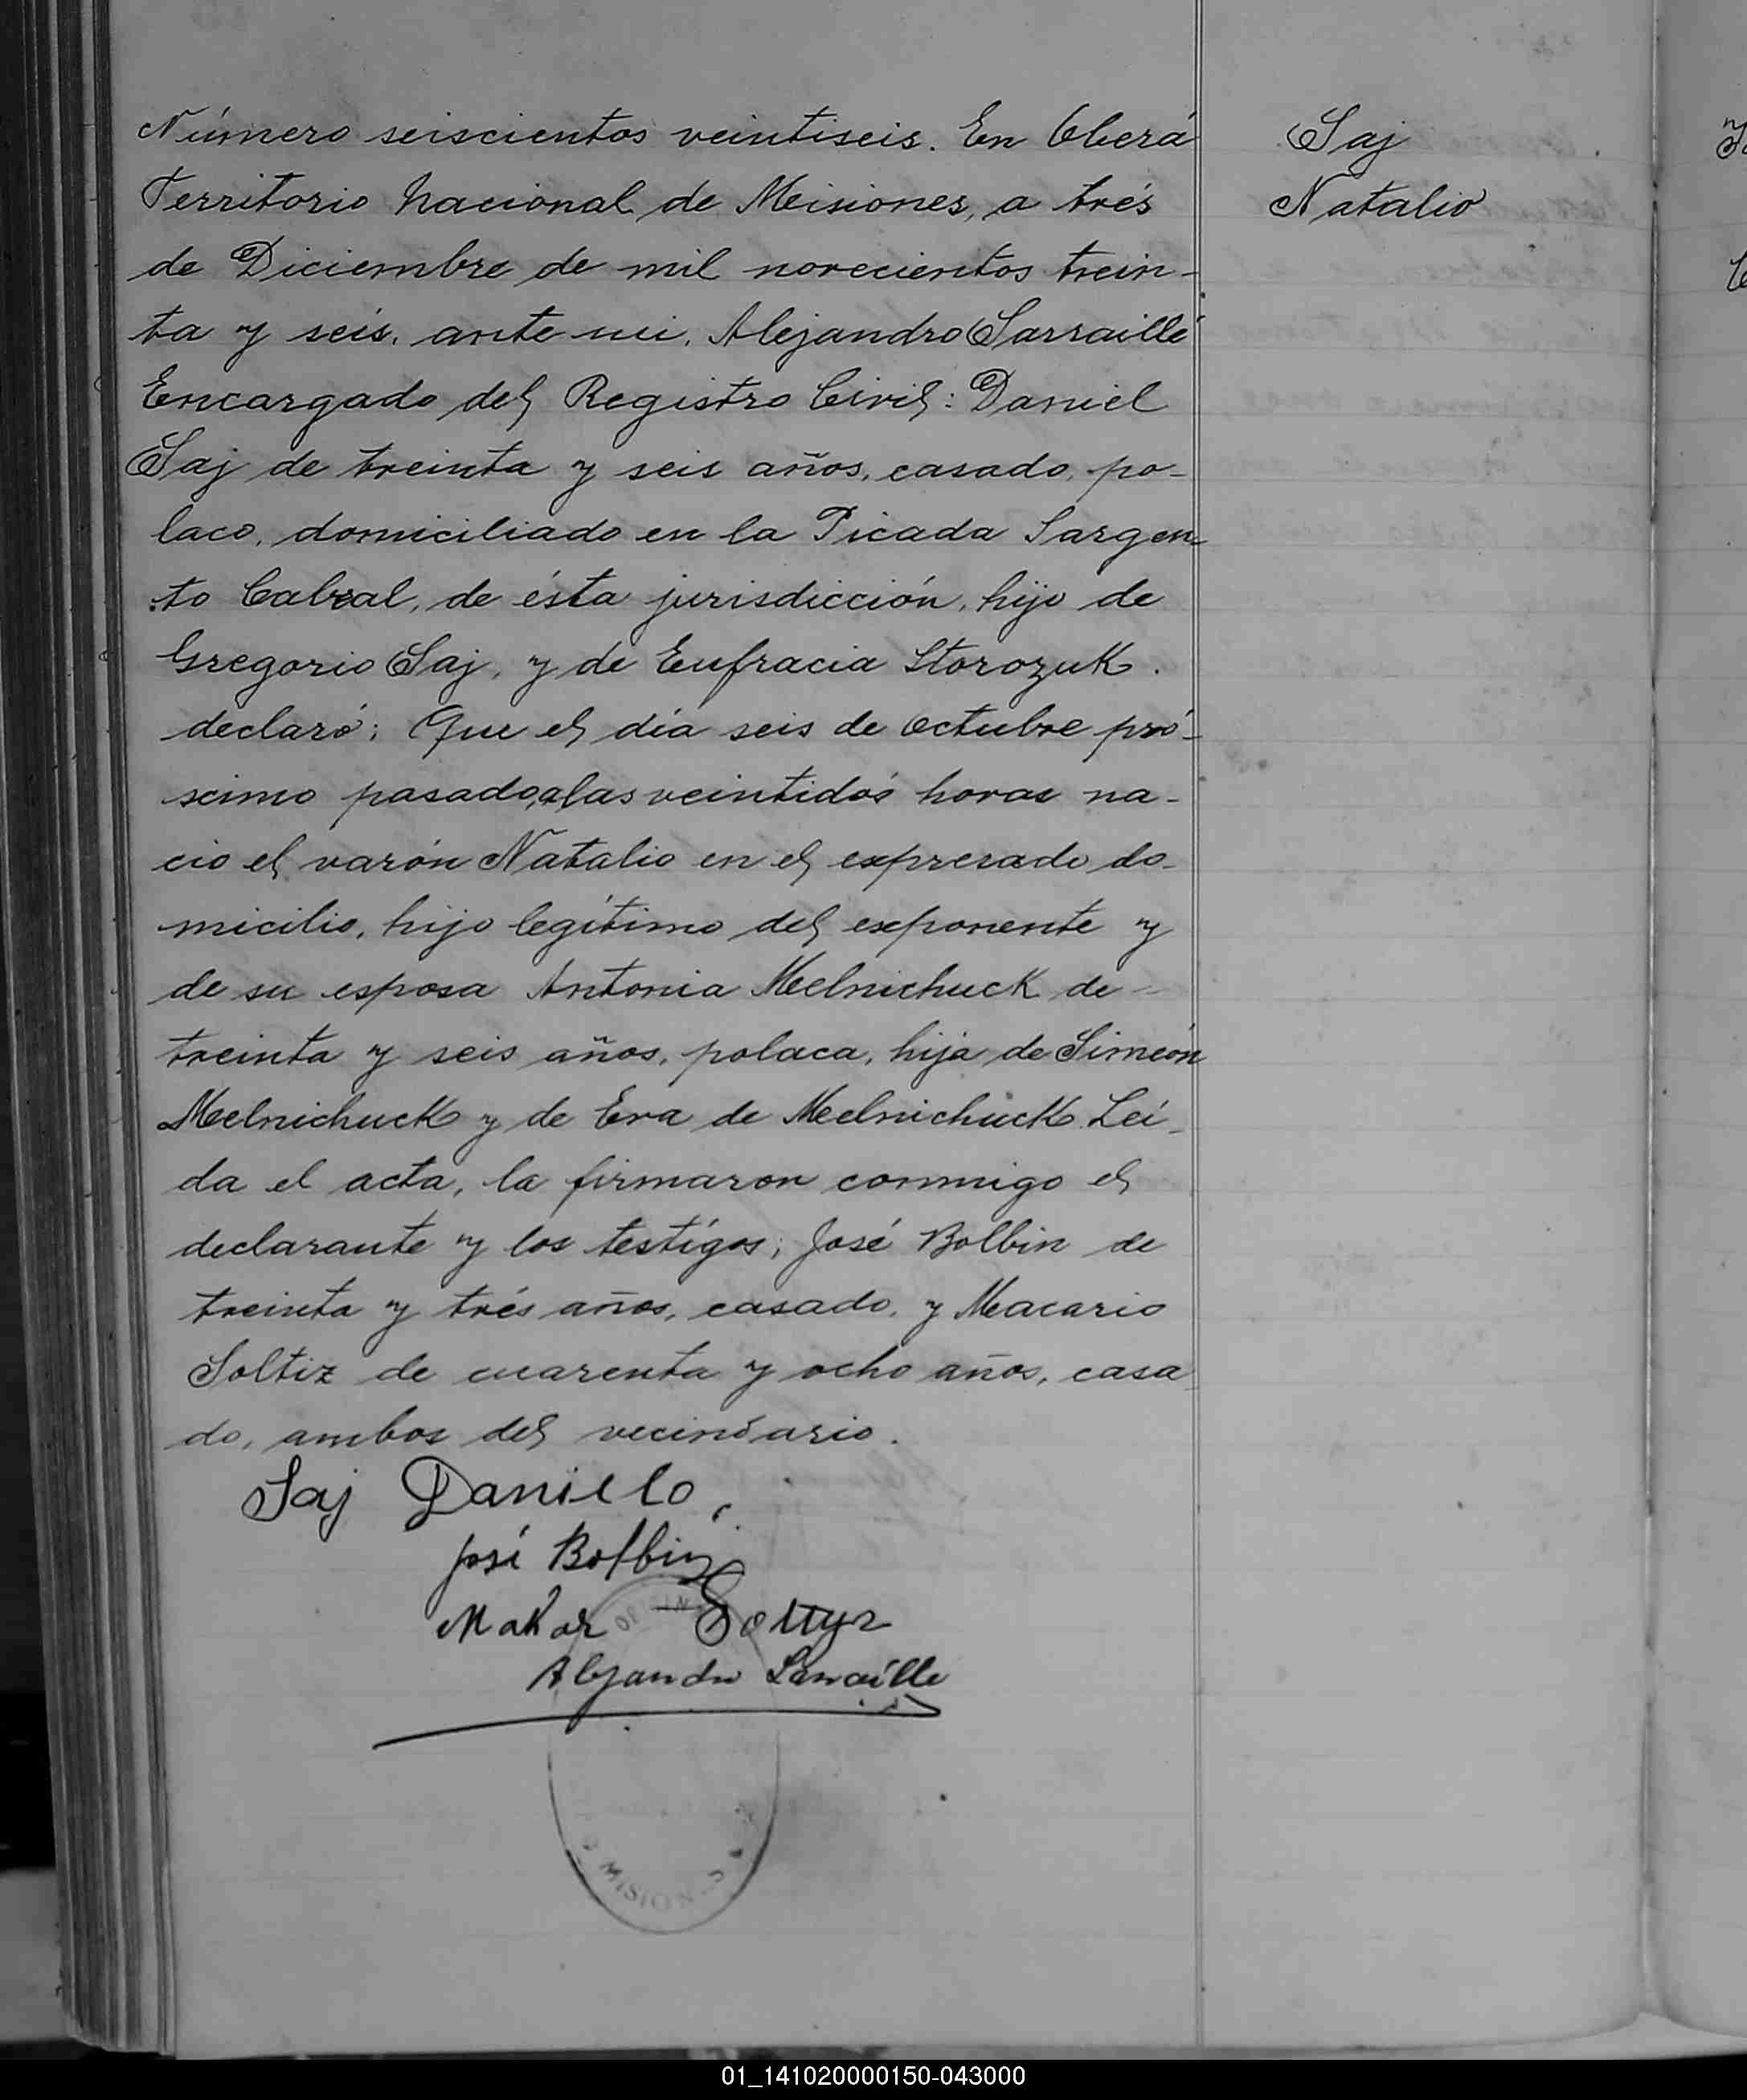 Número seiscientos veintiseis. En Oberá
Territorio Nacional de Misiones, a trés
de Diciembre de mil novecientos trein-
ta y seis, ante mi, Alejandro Sarraillé
Encargado del Registro Civil: Daniel
Saj de treinta y seis años, casado, po-
laco, domiciliado en la Picada Sargen-
to Cabral, de ésta jurisdicción, hijo de
Gregorio Saj, y de Eufracia Storozuk.
declaró: Que el día seis de octubre pró-
scimo pasado, a las veintidós horas na-
cio el varón Natalio en el expresado do-
micilio, hijo legítimo del exponente y
de su esposa Antonia Melnichuck de
treinta y seis años, polaca, hija de Simeón
Melnichuck y de Eva de Melnichuck. Leí-
da el acta, la firmaron conmigo el
declarante y los testígos; José Bolbin de
treinta y trés años, casado, y Macario
Soltiz de cuarenta y ocho años, casa-
do, ambos del vecindario.
Saj Danielo,
José Bolbin
Makar Soltys
Alejandro Sarraille
MISIONES
Saj
Natalio
01_141020000150-043000